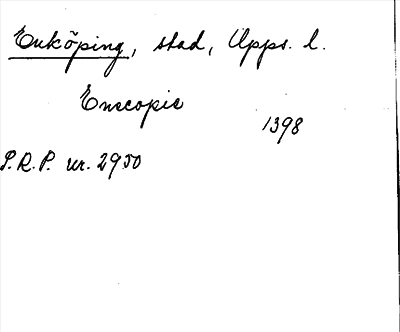 Enköping, stad, Upps. l.
Enecopie
1398
S.R.P. nr. 2950